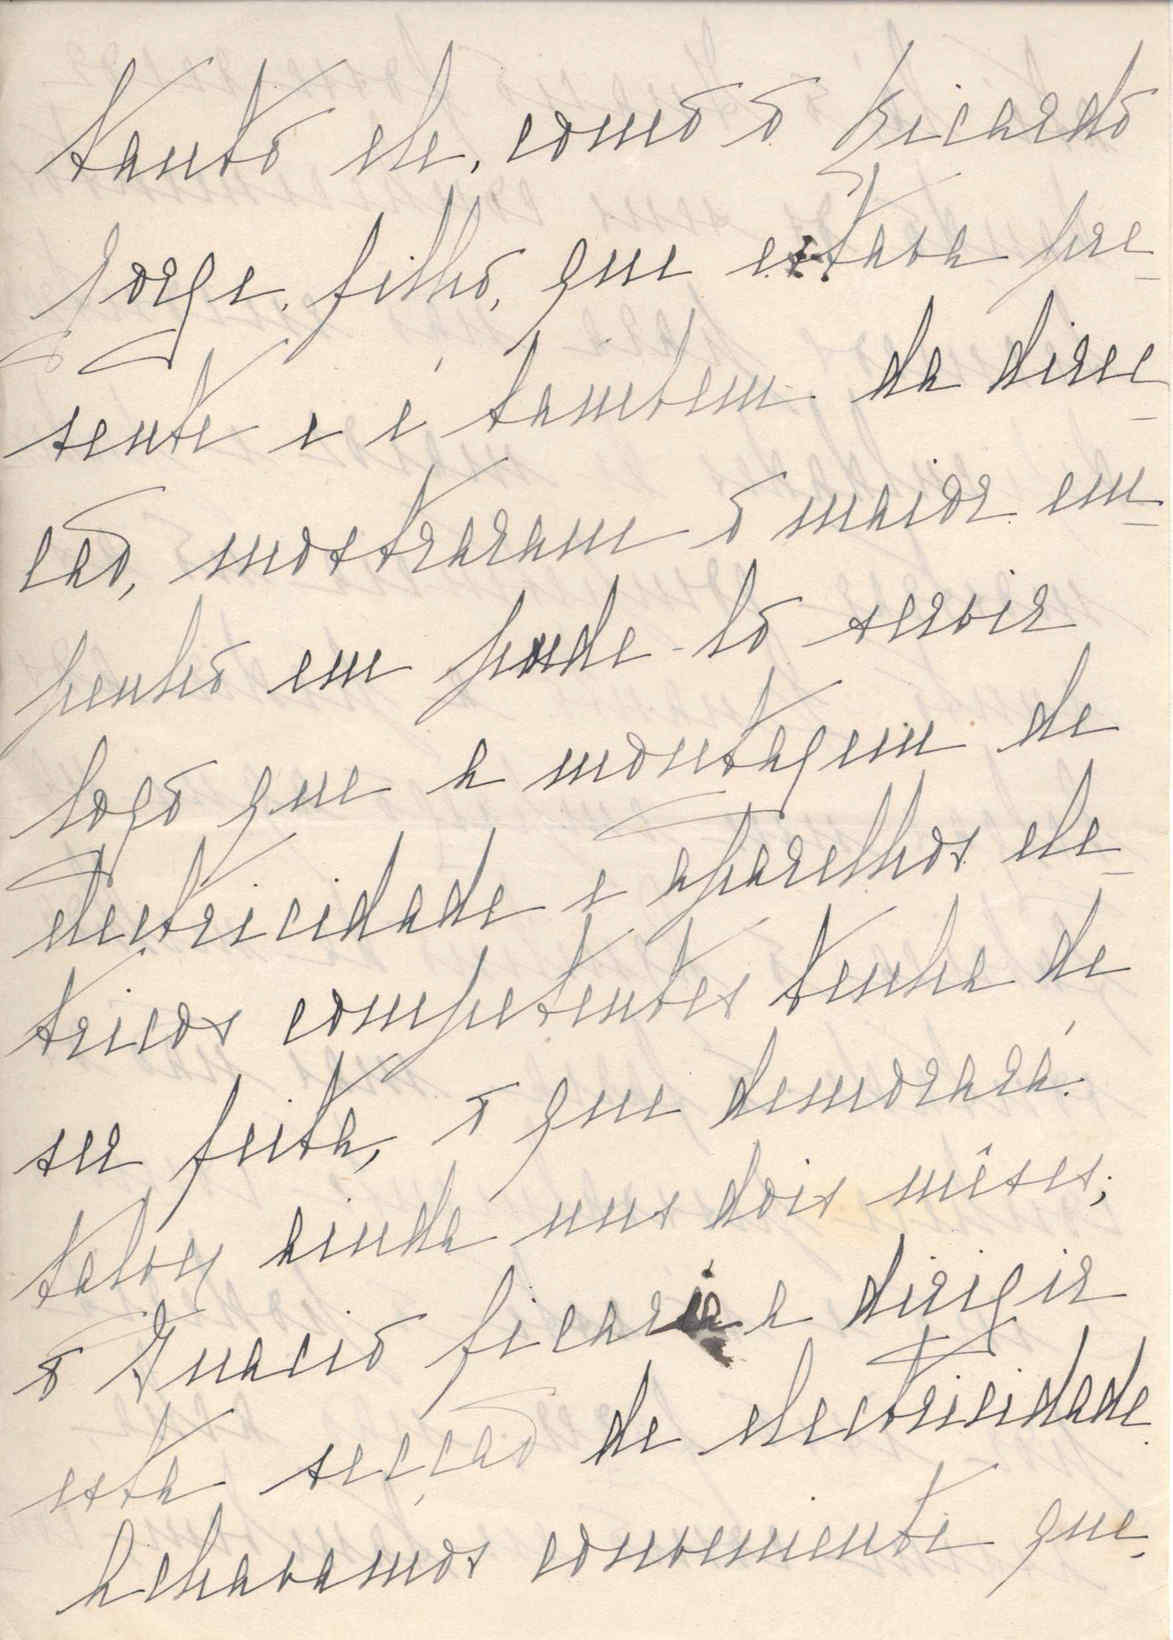 tanto ele, como o Ricardo
Jorge, filho, que estava pre-
sente e é tambem da direc-
ção, mostraram o maior em-
penho em pude-lo servir
logo que a montagem de
electricidade e aparelhos ele-
tricos competentes tenha de
ser feita, o que demorará
talvez ainda uns dois mêses;
o Inacio ficaria a dirigir
esta secção de electricidade.
Achavamos conveniente que,